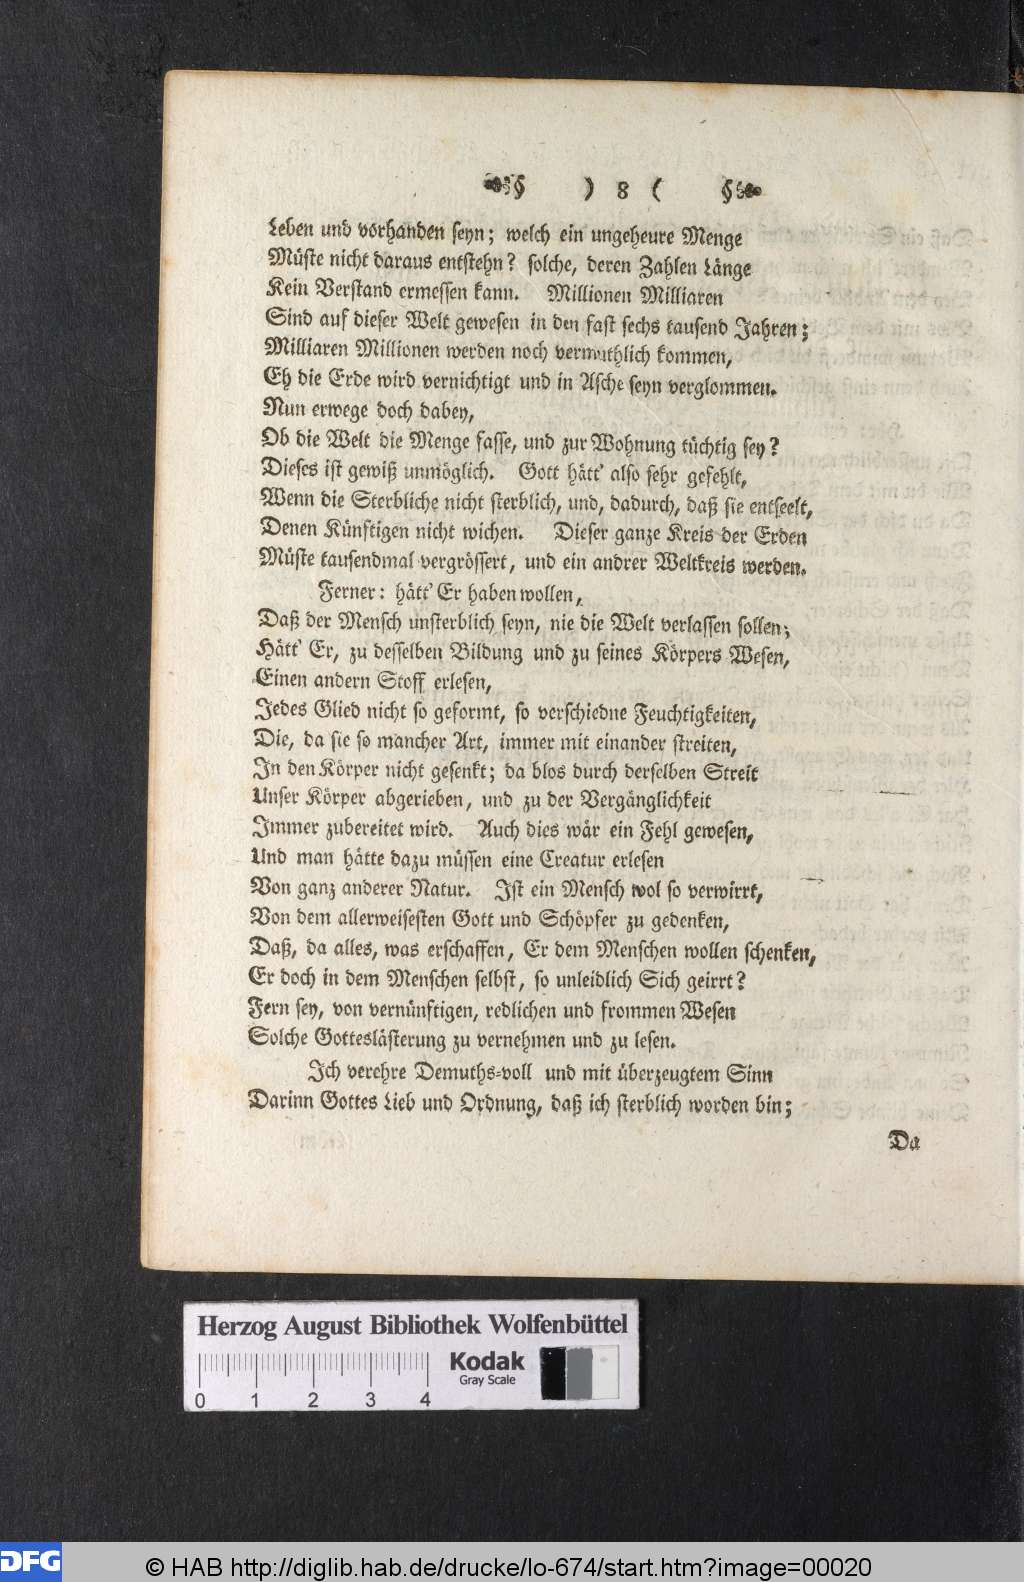 ) 8 (
Leben und vorhanden seyn; welch ein ungeheure Menge
Müste nicht daraus entstehn? solche, deren Zahlen Länge
Kein Verstand ermessen kann. Millionen Milliaren
Sind auf dieser Welt gewesen in den fast sechs tausend Jahren;
Milliaren Millionen werden noch vermuthlich kommen,
Eh die Erde wird vernichtigt und in Asche seyn verglommen.
Nun erwege doch dabey,
Ob die Welt die Menge fasse, und zur Wohnung tüchtig sey?
Dieses ist gewiß unmöglich. Gott hätt' also sehr gefehlt,
Wenn die Sterbliche nicht sterblich, und, dadurch, daß sie entseelt,
Denen Künftigen nicht wichen. Dieser ganze Kreis der Erden
Müste tausendmal vergrössert, und ein andrer Weltkreis werden.
Ferner: hätt' Er haben wollen,
Daß der Mensch unsterblich seyn, nie die Welt verlassen sollen;
Hätt' Er, zu desselben Bildung und zu seines Körpers Wesen,
Einen andern Stoff erlesen,
Jedes Glied nicht so geformt, so verschiedne Feuchtigkeiten,
Die, da sie so mancher Art, immer mit einander streiten,
In den Körper nicht gesenkt; da blos durch derselben Streit
Unser Körper abgerieben, und zu der Vergänglichkeit
Immer zubereitet wird. Auch dies wär ein Fehl gewesen,
Und man hätte dazu müssen eine Creatur erlesen
Von ganz anderer Natur. Ist ein Mensch wol so verwirrt,
Von dem allerweisesten Gott und Schöpfer zu gedenken,
Daß, da alles, was erschaffen, Er dem Menschen wollen schenken,
Er doch in dem Menschen selbst, so unleidlich Sich geirrt?
Fern sey, von vernünftigen, redlichen und frommen Wesen
Solche Gotteslästerung zu vernehmen und zu lesen.
Ich verehre Demuths-voll und mit überzeugtem Sinn
Darinn Gottes Lieb und Ordnung, daß ich sterblich worden bin;
Da
Herzog August Bibliothek Wolfenbüttel
Kodak
Gray Scale
0 1 2 3 4
DFG
© HAB http://diglib.hab.de/drucke/lo-674/start.htm?image=00020